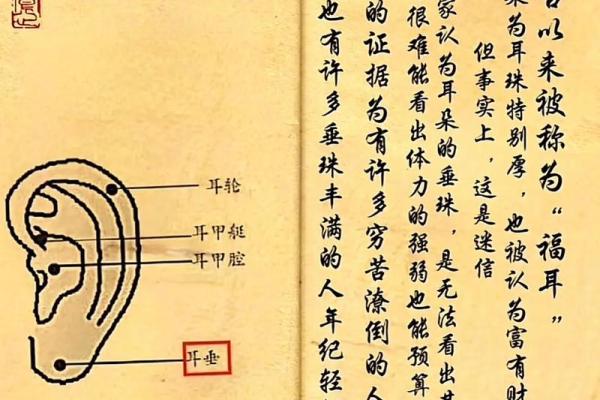 以来被称为“福耳”
为耳珠特别厚，也被认为富有财
但事实上，这是迷信
家认为耳朵的垂珠，是无法看出其
很难能看出体力的强弱也能预算
的证据为有许多穷苦潦倒的人
也有许多垂珠丰满的人年纪轻
耳轮
耳甲艇
耳甲腔
耳垂